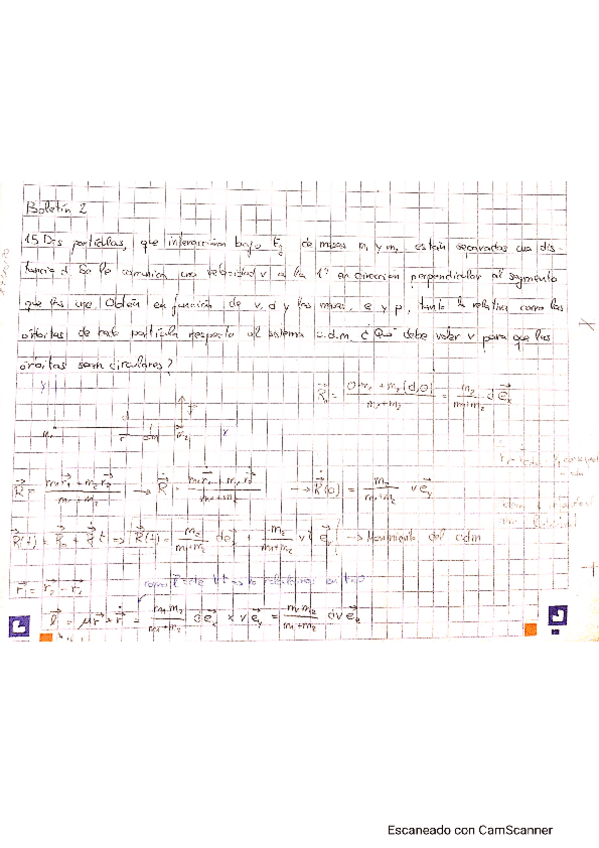 Boletín 2
15 Dos partículas, que interaccionan bajo F_g de masas m₁ y m₂ están separadas una dis-
tancia d. Se le comunica una velocidad v a la 1ª en dirección perpendicular al segmento
que las une. Obtén en función de v, d y las masas, e y p, tanto la relativa como las
órbitas de cada partícula respecto al sistema c.d.m. ¿Qué debe valer v para que las
órbitas sean circulares?
y
R⃗₀ = (0·m₁ + m₂(d,0))/(m₁+m₂) = m₂/(m₁+m₂) d e⃗ₓ
m₁ d r⃗ cdm m₂ v⃗ x
R⃗ = (m₁r⃗₁ + m₂r⃗₂)/(m₁+m₂) → R⃗̇ = (m₁r⃗̇₁ + m₂r⃗̇₂)/(m₁+m₂) → R⃗̇(0) = m₂/(m₁+m₂) v e⃗ᵧ
R⃗(t) = R⃗₀ + R⃗̇ t ⇒ R⃗(t) = m₂/(m₁+m₂) d e⃗ₓ + m₂/(m₁+m₂) v t e⃗ᵧ → Movimiento del cdm
r⃗ = r⃗₂ - r⃗₁
l⃗ = μ r⃗ × r⃗̇ = m₁m₂/(m₁+m₂) d e⃗ₓ × v e⃗ᵧ = m₁m₂/(m₁+m₂) d v e⃗_z
Escaneado con CamScanner